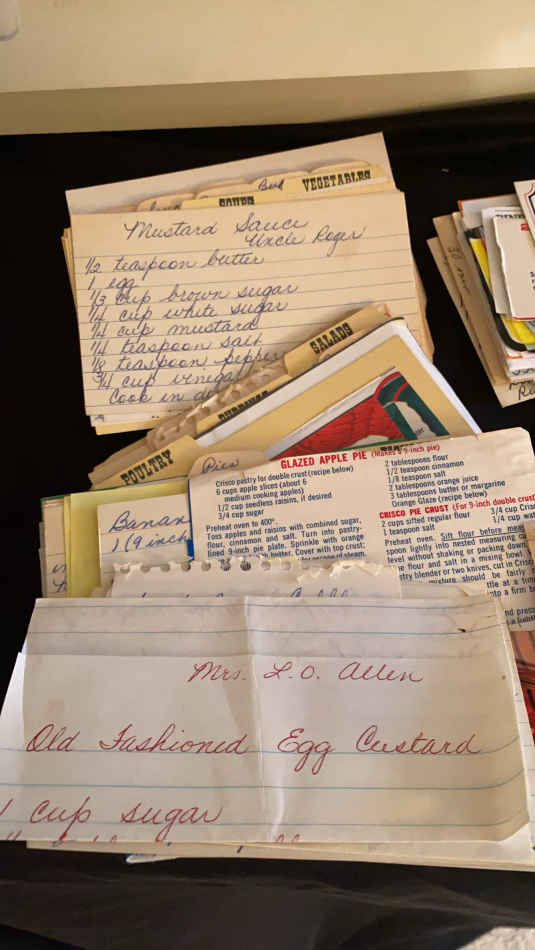 VEGETABLES
SOUPS
Mustard Sauce
Uncle Roger
1/2 teaspoon butter
1 egg
1/3 cup brown sugar
1/4 cup white sugar
1/4 cup mustard
1/4 teaspoon salt
1/8 teaspoon pepper
3/4 cup vinegar
Cook in do
SALADS
PUDDINGS
POULTRY
Pies
GLAZED APPLE PIE (Makes a 9-inch pie)
Crisco pastry for double crust (recipe below)
6 cups apple slices (about 6
medium cooking apples)
1/2 cup seedless raisins, if desired
3/4 cup sugar
2 tablespoons flour
1/2 teaspoon cinnamon
1/8 teaspoon salt
2 tablespoons orange juice
3 tablespoons butter or margarine
Orange Glaze (recipe below)
Preheat oven to 400°.
Toss apples and raisins with combined sugar,
flour, cinnamon and salt. Turn into pastry-
lined 9-inch pie plate. Sprinkle with orange
butter. Cover with top crust;
CRISCO PIE CRUST (For 9-inch double crust)
2 cups sifted regular flour
1 teaspoon salt
3/4 cup Cris
1/4 cup wa
Preheat oven. Sift flour before meas
spoon lightly into nested measuring cu
level without shaking or packing down
flour and salt in a mixing bowl
stry blender or two knives, cut in Crisc
mixture should be fairly
tle at a time
nto a firm ba
Banan
1 (9 inch
Mrs. L.O. Allen
Old Fashioned Egg Custard
1 cup sugar